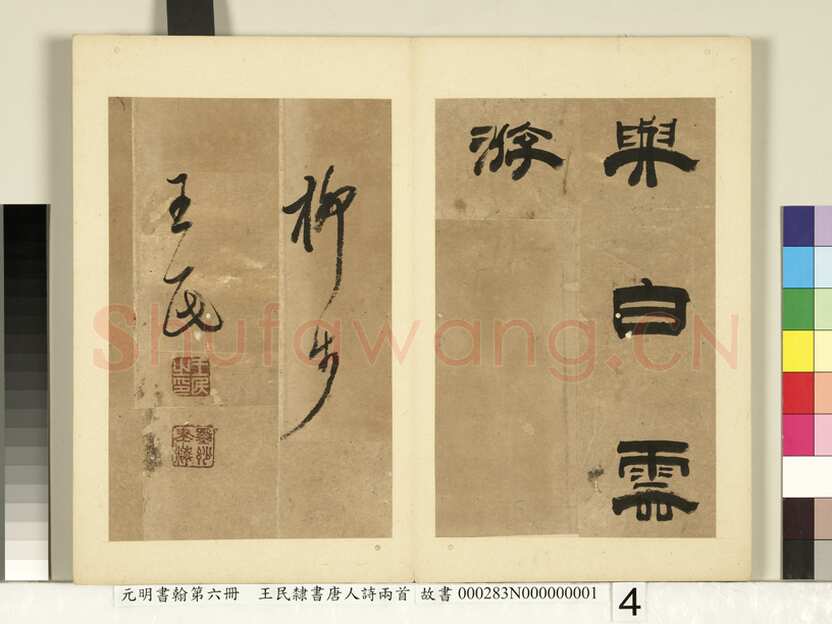 與白雲
游
柳步
王民
王民之印
Shufawang.CN
元明書翰第六冊 王民隸書唐人詩兩首 故書 000283N000000001
4